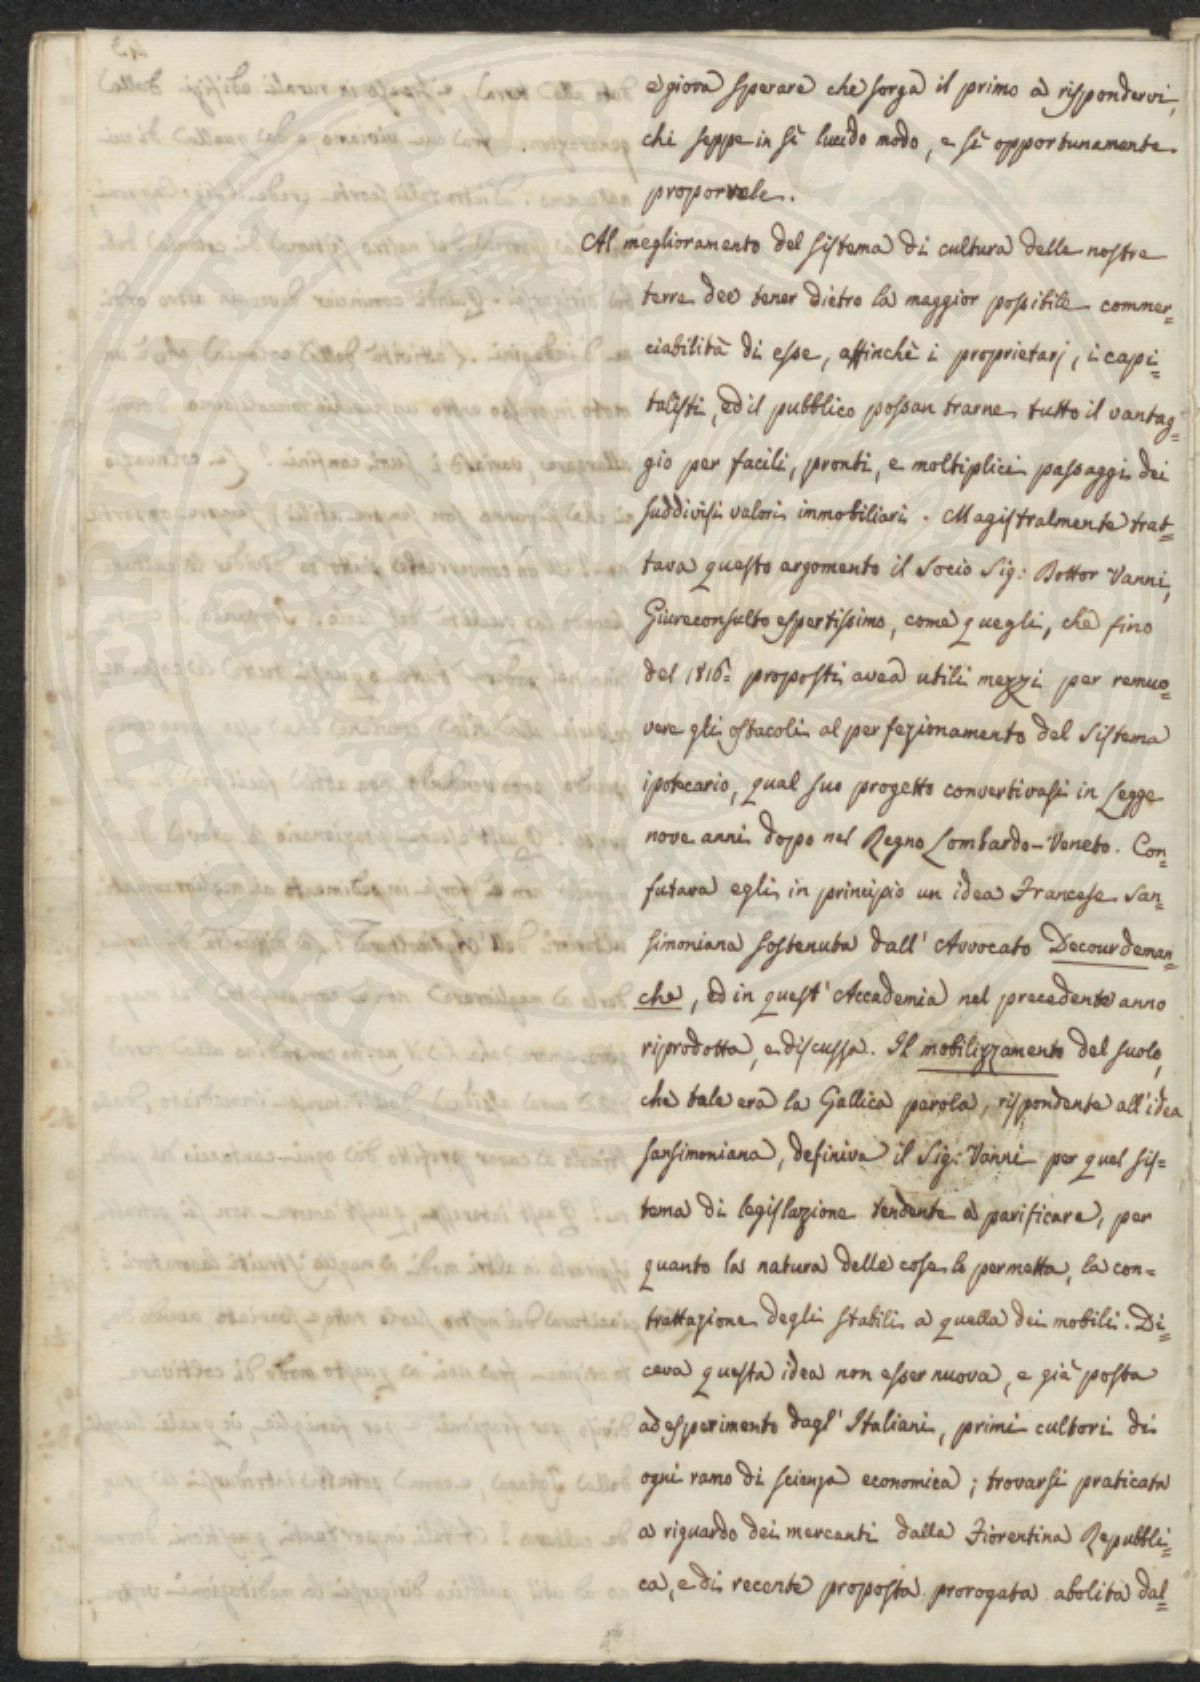 e giova sperare che sorga il primo a rispondervi,
chi seppe in sì lucido modo, e sì opportunamente
proporvele.
Al meglioramento del sistema di cultura delle nostre
terre dee tener dietro la maggior possibile commer=
ciabilità di esse, affinchè i proprietarj, i capi=
talisti, ed il pubblico possan trarne tutto il vantag=
gio per facili, pronti, e moltiplici passaggi dei
suddivisi valori immobiliari. Magistralmente trat=
tava questo argomento il Socio Sig: Dottor Vanni,
Giureconsulto espertissimo, come quegli, che fino
del 1816= proposti avea utili mezzi per remuo=
vere gli ostacoli al perfezionamento del sistema
ipotecario, qual suo progetto convertivasi in Legge
nove anni dopo nel Regno Lombardo-Veneto. Con=
futava egli in principio un idea Francese San=
simoniana sostenuta dall' Avvocato Decourdeman=
che, ed in quest' Accademia nel precedente anno
riprodotta, e discussa. Il mobilizzamento del suolo,
che tale era la Gallica parola, rispondente all' idea
sansimoniana, definiva il Sig: Vanni per quel sis=
tema di legislazione tendente a parificare, per
quanto la natura delle cose lo permetta, la con=
trattazione degli stabili a quella dei mobili. Di=
ceva questa idea non esser nuova, e già posta
ad esperimento dagl' Italiani, primi cultori di
ogni ramo di scienza economica; trovarsi praticata
a riguardo dei mercanti dalla Fiorentina Repubbli=
ca, e di recente proposta prorogata abolita dal=